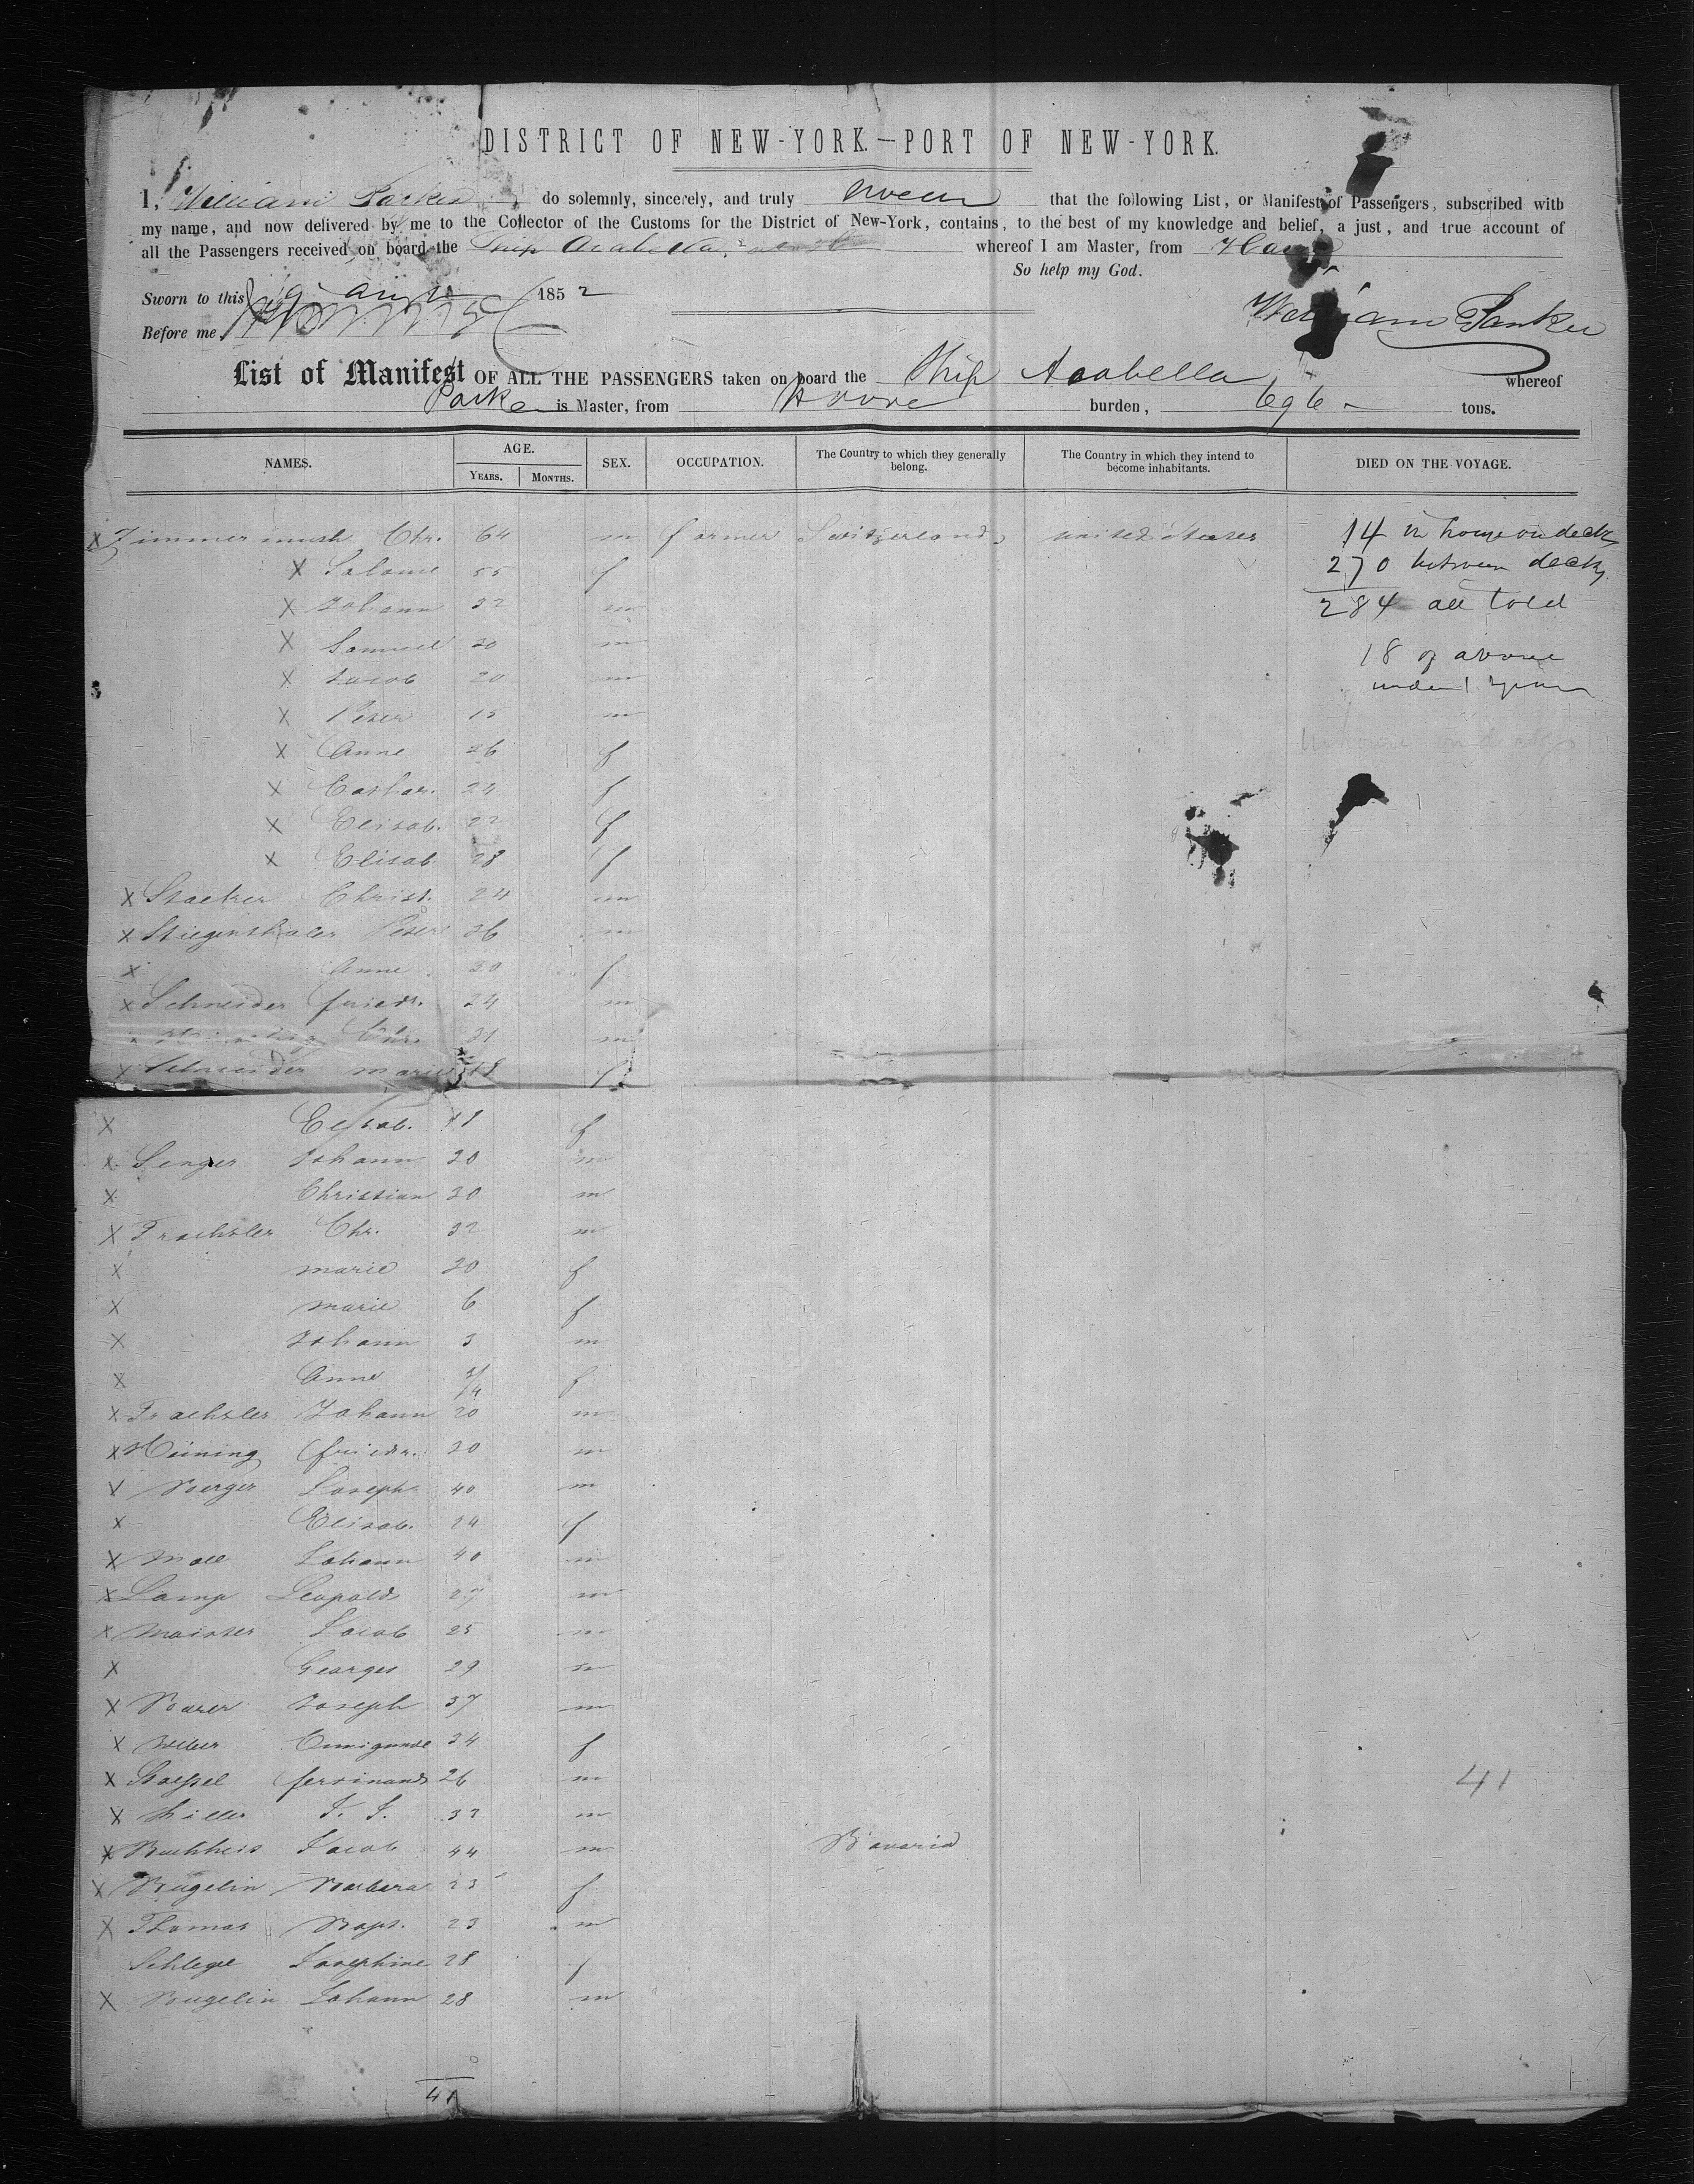 DISTRICT OF NEW-YORK.—PORT OF NEW-YORK.
I, William Parker do solemnly, sincerely, and truly swear that the following List, or Manifest of Passengers, subscribed with
my name, and now delivered by me to the Collector of the Customs for the District of New-York, contains, to the best of my knowledge and belief, a just, and true account of
all the Passengers received on board the Ship Arabella, whereof I am Master, from Havre
So help my God.
Sworn to this 9 Aug 1852
William Parker
Before me
List of Manifest OF ALL THE PASSENGERS taken on board the Ship Arabella whereof
Parker is Master, from Havre burden, 696 tons.
NAMES. AGE. YEARS. MONTHS. SEX. OCCUPATION. The Country to which they generally belong. The Country in which they intend to become inhabitants. DIED ON THE VOYAGE.
X Chr. 64 m farmer Switzerland united States 14 in house on deck
X Salome 55 f 270 between decks
X Johann 32 m 284 all told
X Samuel 30 m
18 of above
X Jacob 20 m under 1 year
X Peter 15 m
X Anne 26 f in house on deck
X Cathar. 24 f
X Elisab. 22 f
X Elisab. 28 f
X Christ. 24 m
X Stiegenthaler Peter 36 m
X Anne 30 f
X Schneider friedr. 24 m
Chr. 31 m
X Schneider marie 18 f
X Elisab. f
X Senger Johann 30 m
X Christian 30 m
X Trachsler Chr. 32 m
X marie 30 f
X marie 6 f
X Johann 3 m
X Anne 3/4 f
X Trachsler Johann 20 m
X Hüning friedr. 30 m
X Berger Joseph 40 m
X Elisab. 24 f
X Moll Johann 40 m
X Lamp Leopold 27 m
X Maister Jacob 25 m
X Georges 29 m
X Baxer Joseph 37 m
X Weber Cunigunde 34 f
X ferdinand 26 m 41
X Hiller J. J. 33 m
X Buchheis Jacob 44 m Bavaria
X Bugelin Barbara 23 f
X Thomas Bapt. 23 m
Schlegel Josephine 28 f
X Bugelin Johann 28 m
41